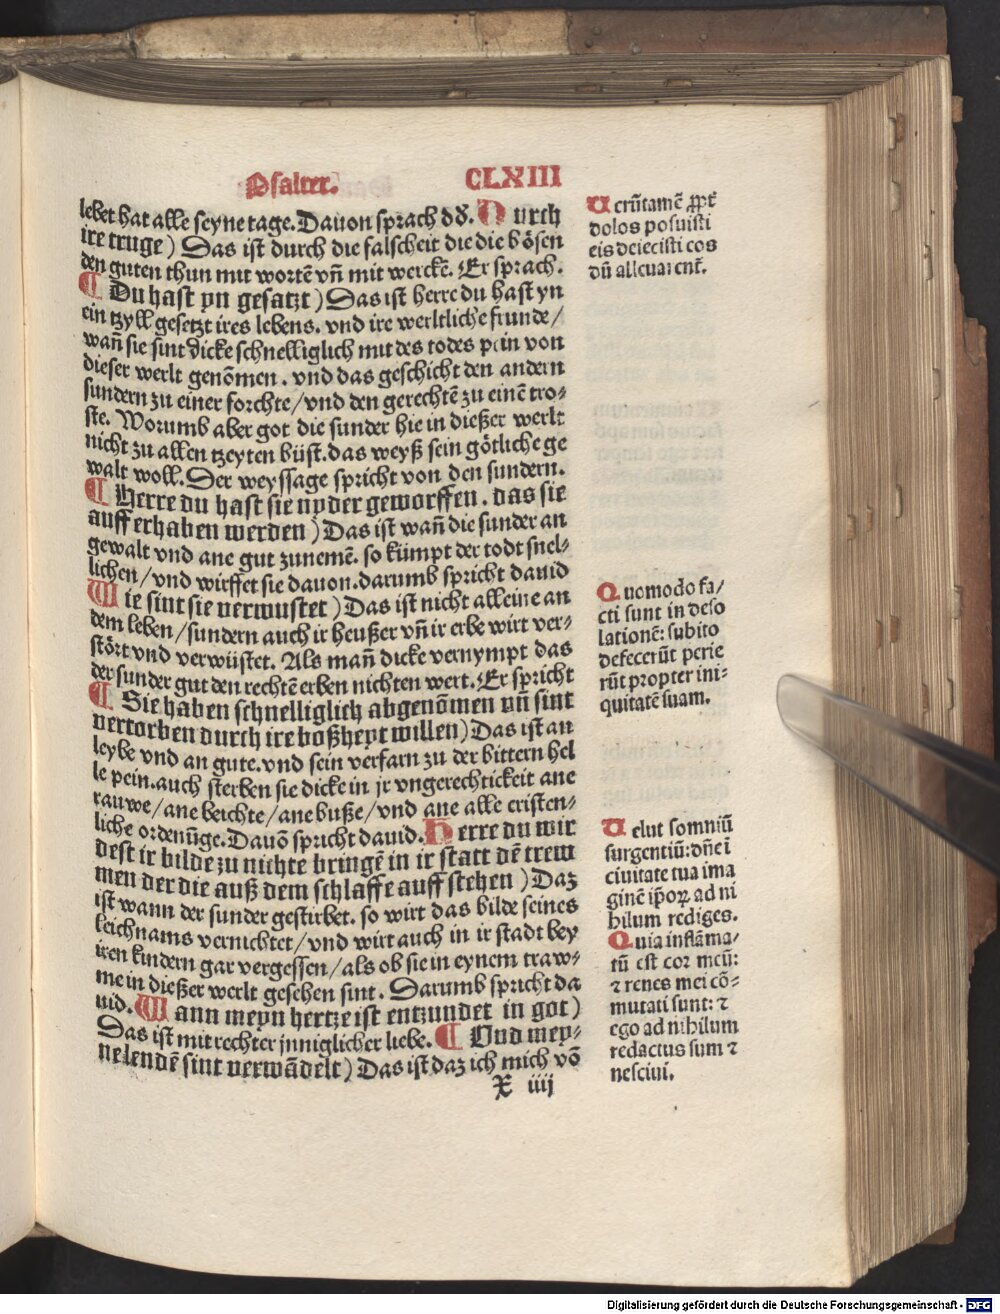 Psalter.
CLXIII
lebet hat alle seyne tage. Dauon sprach dd. Durch
ire truge) Das ist durch die falscheit die die bösen
den guten thun mit wortē vñ mit werckē. Er sprach.
¶ Du hast yn gesatzt) Das ist herre du hast yn
ein tzyll gesetzt ires lebens. vnd ire werltliche frunde/
wañ sie sint dicke schnelliglich mit des todes pein von
dieser werlt genōmen. vnd das geschicht den andern
sundern zu einer forchte/vnd den gerechtē zu einē tro-
ste. Worumb aber got die sunder hie in dießer werlt
nicht zu allen tzeyten büst. das weyß sein götliche ge
walt woll. Der weyssage spricht von den sundern.
¶ Herre du hast sie nyder geworffen. das sie
auff erhaben werden) Das ist wañ die sunder an
gewalt vnd ane gut zunemē. so kümpt der todt snel-
lichen/vnd wirffet sie dauon. darumb spricht dauid
Wie sint sie verwustet) Das ist nicht alleine an
dem leben/sundern auch ir heußer vñ ir erbe wirt ver-
stört vnd verwüstet. Als mañ dicke vernympt das
der sunder gut den rechtē erben nichten wert. Er spricht
¶ Sie haben schnelliglich abgenōmen vñ sint
vertorben durch ire boßheyt willen) Das ist an
leybe vnd an gute. vnd sein verfarn zu der bittern hel
le pein. auch sterben sie dicke in jr vngerechtickeit ane
rauwe/ane beichte/ane buße/vnd ane alle cristen-
liche ordenūge. Dauō spricht dauid. Herre du wir
dest ir bilde zu nichte bringē in ir statt dē trew
men der die auß dem schlaffe auff stehen) Daz
ist wann der sunder gestirbet. so wirt das bilde seines
leichnams vernichtet/vnd wirt auch in ir stadt bey
iren kindern gar vergessen/als ob sie in eynem traw-
me in dießer werlt gesehen sint. Darumb spricht da
uid. Wann meyn hertze ist entzundet in got)
Das ist mit rechter jnniglicher liebe. ¶ Vnd mey-
ne lendē sint verwādelt) Das ist daz ich mich vō
X iiij
Uerūtamē ꝓpt̄
dolos posuisti
eis deiecisti eos
dū alleuarent̄.
Quomodo fa/
cti sunt in deso
lationē: subito
defecerūt perie
rūt propter ini-
quitatē suam.
Uelut somniū
surgentiū: dn̄e ī
ciuitate tua ima
ginē ip̄oꝝ ad ni
hilum rediges.
Quia inflāma/
tū est cor meū:
⁊ renes mei cō-
mutati sunt: ⁊
ego ad nihilum
redactus sum ⁊
nesciui.
Digitalisierung gefördert durch die Deutsche Forschungsgemeinschaft - DFG